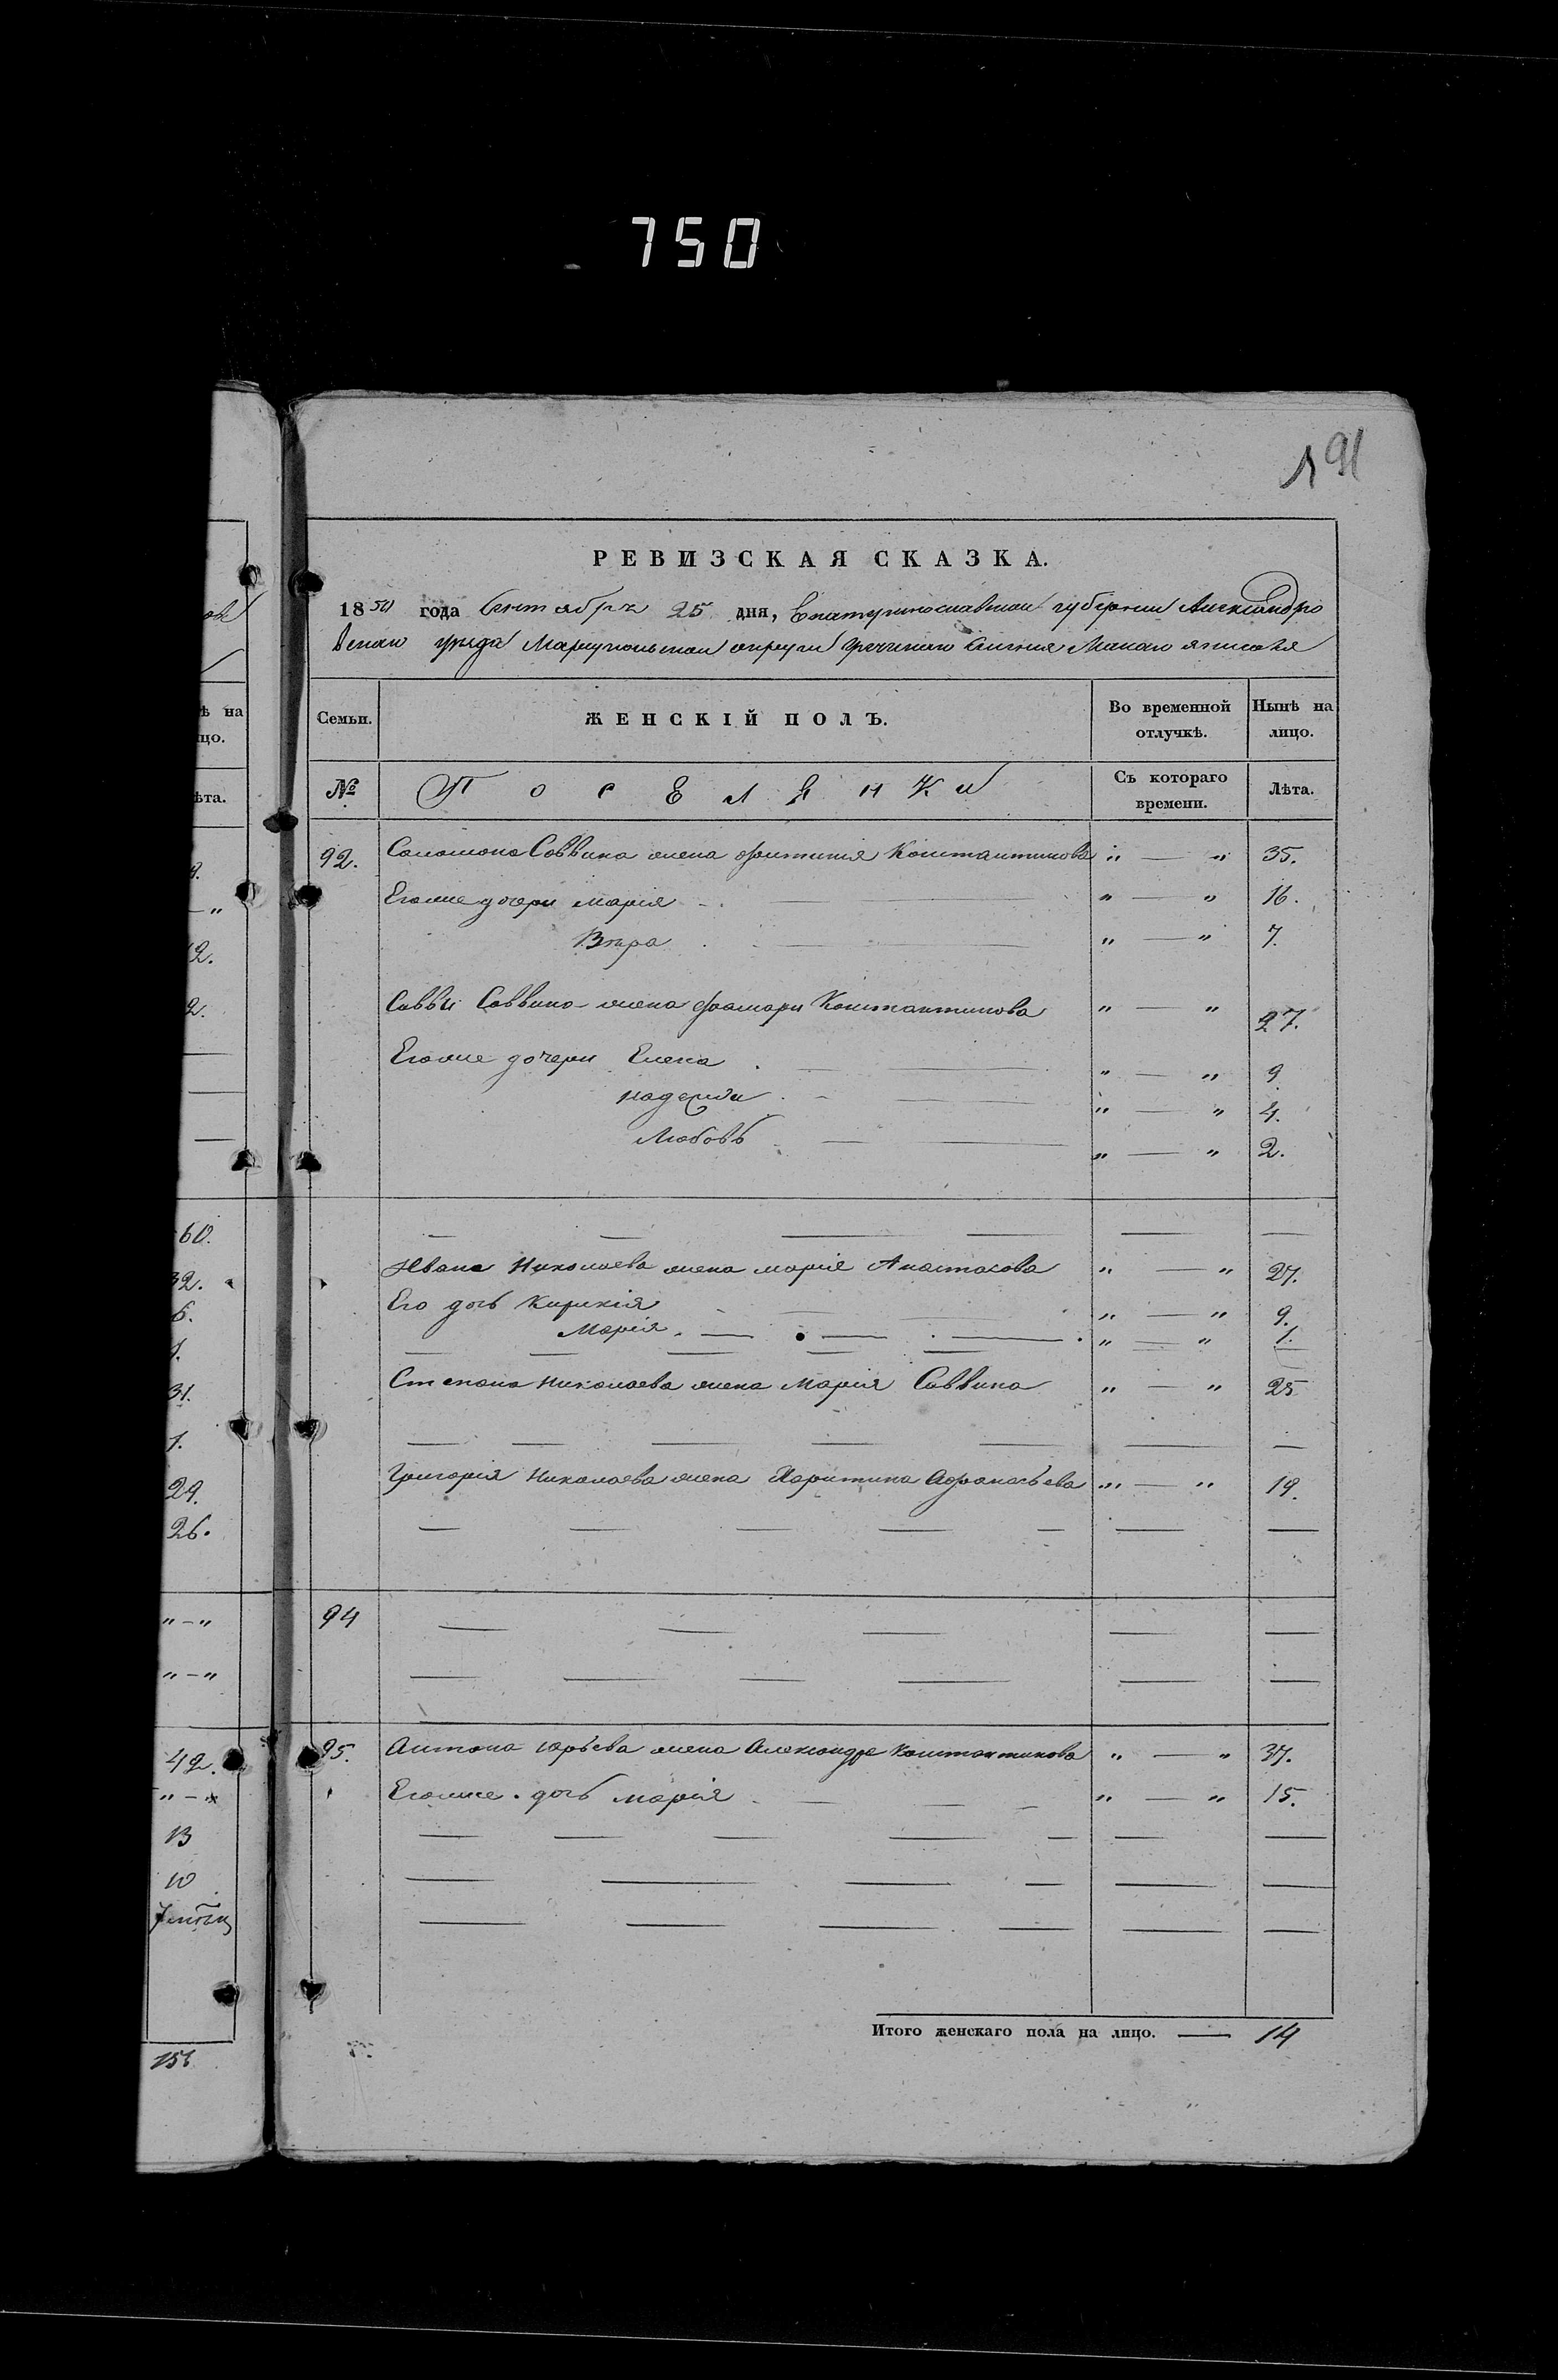 750
191
РЕВИЗСКАЯ СКАЗКА.
1850 года Сентября 25 дня, Екатеринославской губернии Александро
вскаго уезда Мариупольскаго округа Греческаго селения
ѣ на
цо.
Семьи.
ЖЕНСКІЙ ПОЛЪ.
Во временной отлучкѣ.
Нынѣ на лицо.
ѣта.
№
Поселянки
Съ котораго времени.
Лѣта.
92. Соломона Саввина жена Фотиния Константинова " — " 35.
Егоже дочери Марія " — " 16.
Вѣра " — " 7.
Саввы Саввина жена Фамари Константинова " — " 27.
Егоже дочери Елена " — " 9
Надежда " — " 4.
Любовь " — " 2.
60.
32. Ивана Николаева жена Марія Анастасова " — " 27.
6. Его дочь Кирикія " — " 9.
1. Марія " — " 1.
31. Степана Николаева жена Марія Саввина " — " 25
1.
29. Григорія Николаева жена Харитина Афанасьева " — " 19.
26.
" — " 94
" — "
42. 95. Антона Юрьева жена Александра Константинова " — " 37.
Егоже дочь Марія " — " 15.
13
10
Итого женскаго пола на лицо. — 14